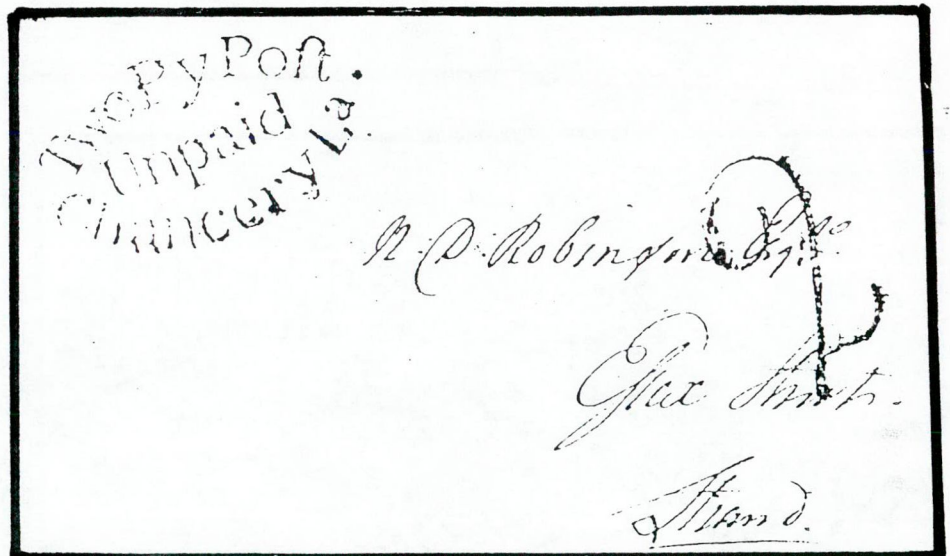 Two Py Poſt
Unpaid
Chancery La.
N. D. Robinson Esqre
Essex Street.
Strand.
2